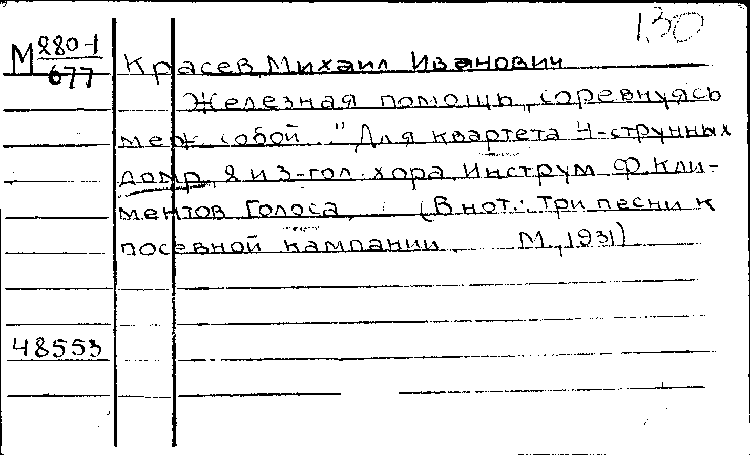 1.30
М 280-1
677
Красев, Михаил Иванович
Железная помощь, соревнуясь
меж собой..." Для квартета 4-струнных
домр, 2 и 3-гол. хора. Инструм. Ф. Кли-
ментов Голоса. (В нот.: Три песни к
посевной кампании. М., 1931)
48553